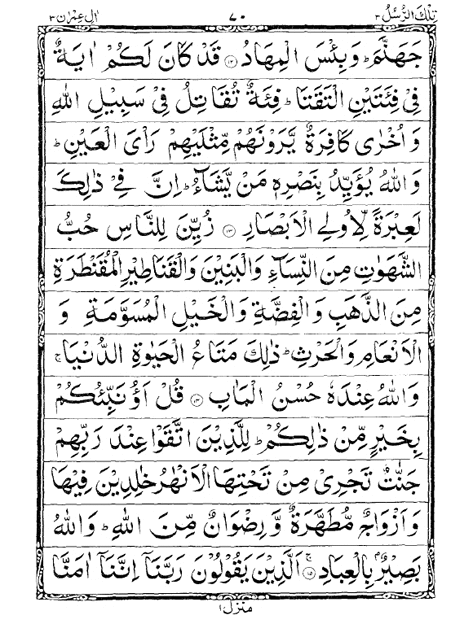 تِلْكَ الرُّسُلُ ٣ ٧٠ اٰلِ عِمْرٰن ٣
جَهَنَّمَ ؕ وَبِئْسَ الْمِهَادُ ﴿۱۲﴾ قَدْ كَانَ لَكُمْ اٰيَةٌ
فِىْ فِئَتَيْنِ الْتَقَتَا ؕ فِئَةٌ تُقَاتِلُ فِىْ سَبِيْلِ اللّٰهِ
وَاُخْرٰى كَافِرَةٌ يَّرَوْنَهُمْ مِّثْلَيْهِمْ رَاْىَ الْعَيْنِ ؕ
وَاللّٰهُ يُؤَيِّدُ بِنَصْرِهٖ مَنْ يَّشَآءُ ؕ اِنَّ فِىْ ذٰلِكَ
لَعِبْرَةً لِّاُولِى الْاَبْصَارِ ﴿۱۳﴾ زُيِّنَ لِلنَّاسِ حُبُّ
الشَّهَوٰتِ مِنَ النِّسَآءِ وَالْبَنِيْنَ وَالْقَنَاطِيْرِ الْمُقَنْطَرَةِ
مِنَ الذَّهَبِ وَالْفِضَّةِ وَالْخَيْلِ الْمُسَوَّمَةِ وَ
الْاَنْعَامِ وَالْحَرْثِ ؕ ذٰلِكَ مَتَاعُ الْحَيٰوةِ الدُّنْيَا ۚ
وَاللّٰهُ عِنْدَهٗ حُسْنُ الْمَاٰبِ ﴿۱۴﴾ قُلْ اَؤُنَبِّئُكُمْ
بِخَيْرٍ مِّنْ ذٰلِكُمْ ؕ لِلَّذِيْنَ اتَّقَوْا عِنْدَ رَبِّهِمْ
جَنّٰتٌ تَجْرِىْ مِنْ تَحْتِهَا الْاَنْهٰرُ خٰلِدِيْنَ فِيْهَا
وَاَزْوَاجٌ مُّطَهَّرَةٌ وَّرِضْوَانٌ مِّنَ اللّٰهِ ؕ وَاللّٰهُ
بَصِيْرٌۢ بِالْعِبَادِ ﴿۱۵﴾ اَلَّذِيْنَ يَقُوْلُوْنَ رَبَّنَاۤ اِنَّنَاۤ اٰمَنَّا
منزل ١